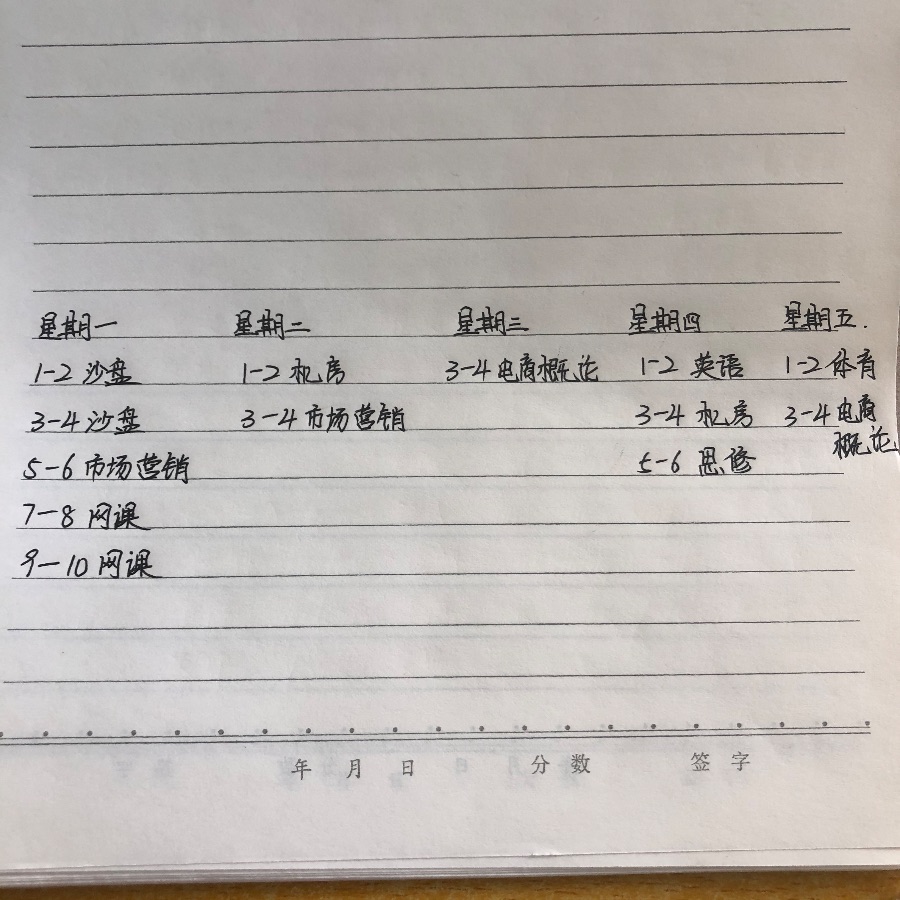 星期一 星期二 星期三 星期四 星期五.
1-2 沙盘 1-2 机房 3-4 电商概论 1-2 英语 1-2 体育
3-4 沙盘 3-4 市场营销 3-4 机房 3-4 电商
概论
5-6 市场营销 5-6 思修
7-8 网课
9-10 网课
年 月 日 分 数 签 字